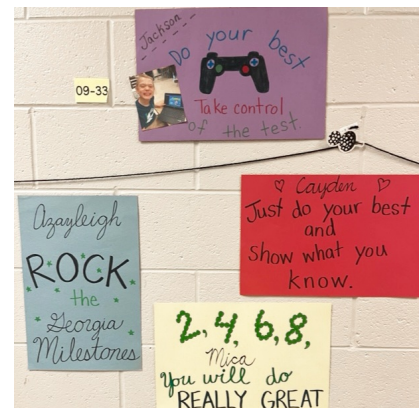 Jackson
Do your best
Take control
of the test.
09-33
Azayleigh
ROCK
the
Georgia
Milestones
Cayden
Just do your best
and
show what you
know.
2, 4, 6, 8,
Mica
You will do
REALLY GREAT